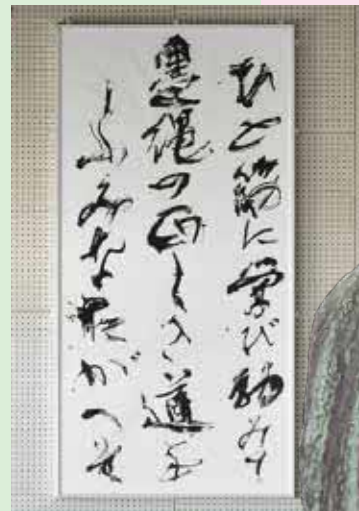 ひと筋に学び
墨縄の正しき道を
ふみなたがへそ